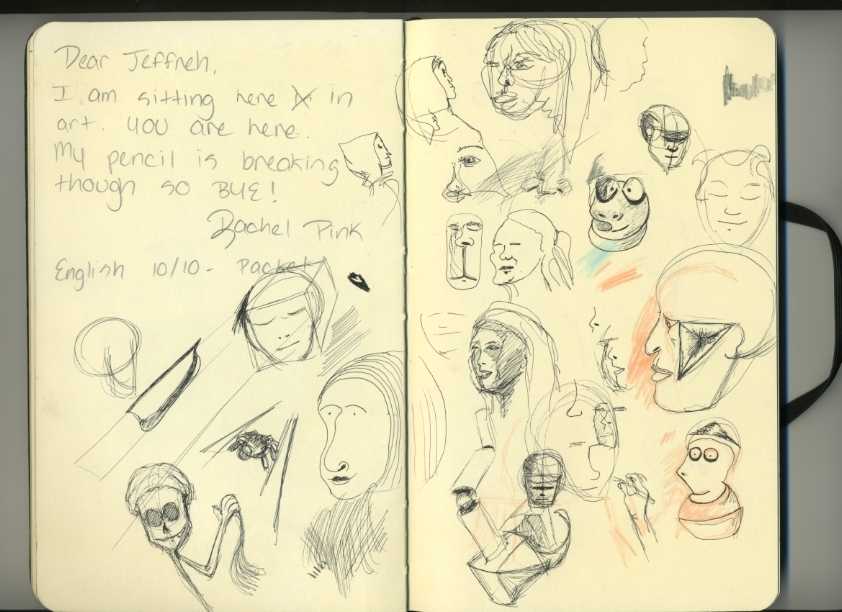 Dear Jeffneh,
I am sitting here in
art. YOU are here.
My pencil is breaking
though so BYE!
Rachel Pink
English 10/10- Packet